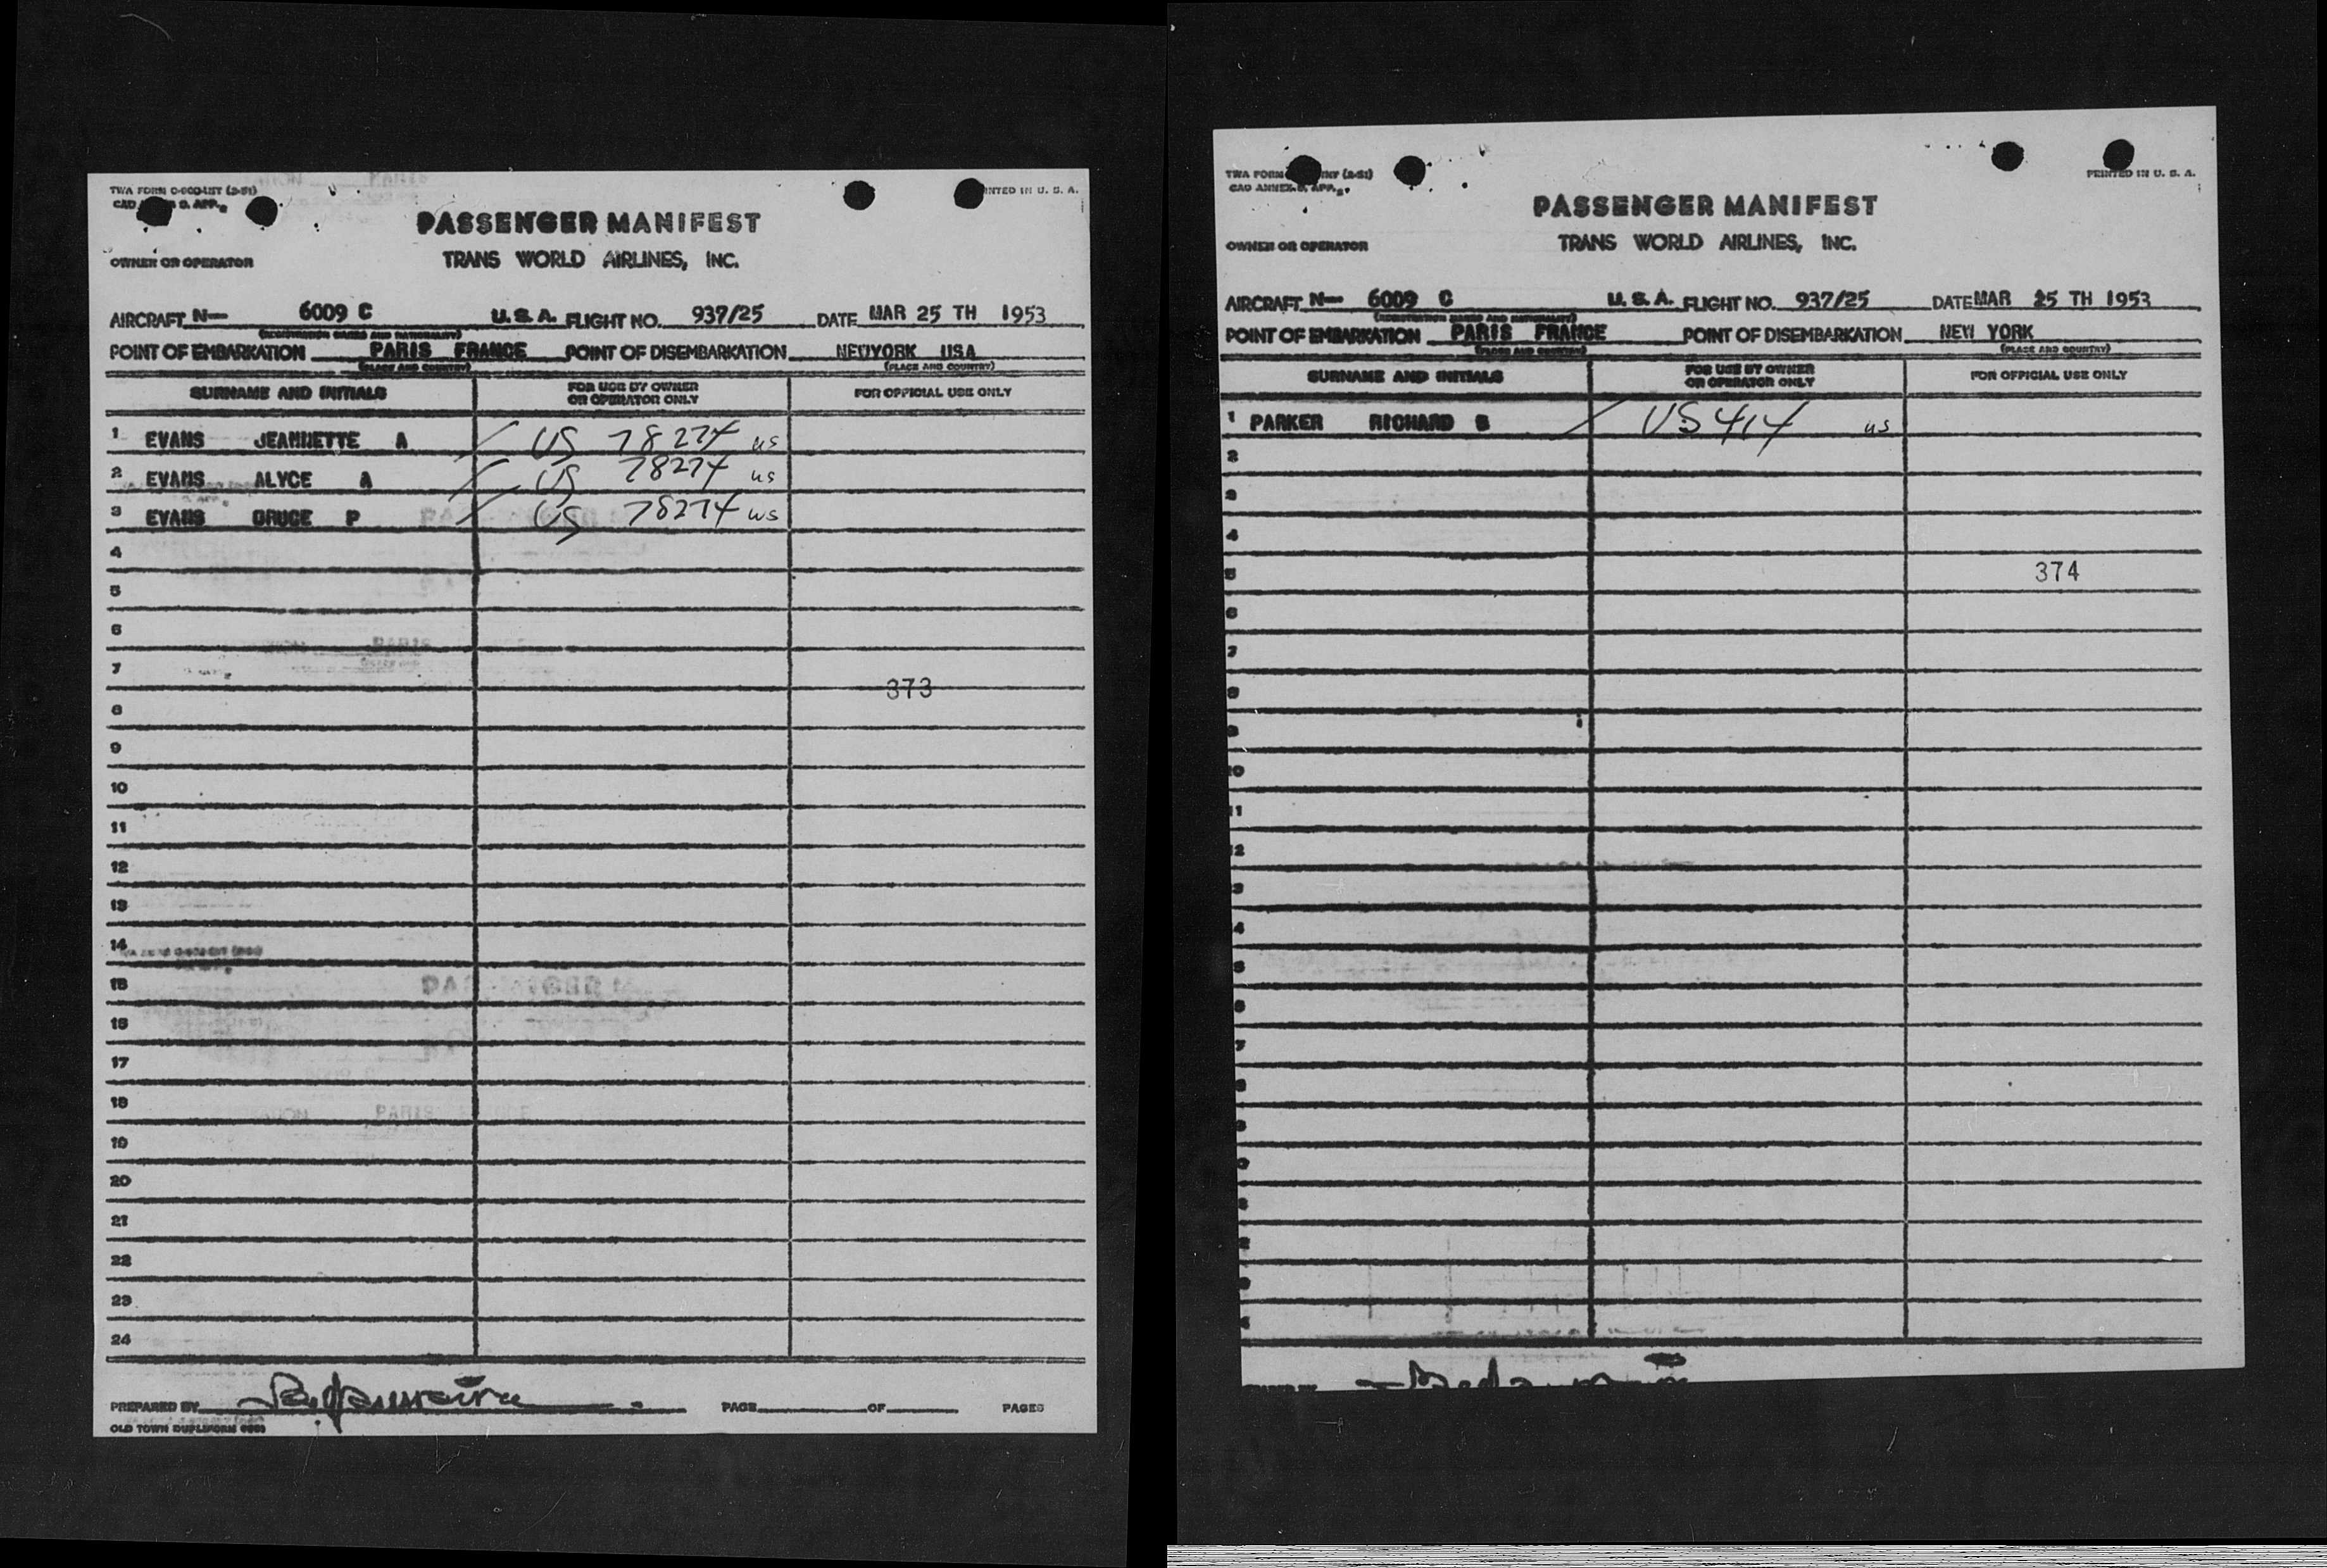 PASSENGER MANIFEST
OWNER OR OPERATOR TRANS WORLD AIRLINES, INC.
AIRCRAFT N— 6009 C U. S. A. FLIGHT NO. 937/25 DATE MAR 25 TH 1953
(REGISTRATION MARKS AND NATIONALITY)
POINT OF EMBARKATION PARIS FRANCE POINT OF DISEMBARKATION NEWYORK USA
(PLACE AND COUNTRY) (PLACE AND COUNTRY)
SURNAME AND INITIALS FOR USE BY OWNER OR OPERATOR ONLY FOR OFFICIAL USE ONLY
1 EVANS JEANNETTE A US 78274 us
2 EVANS ALYCE A US 78274 us
3 EVANS BRUCE P US 78274 us
4
5
6
7
373
8
9
10
11
12
13
14
15
16
17
18
19
20
21
22
23
24
PREPARED BY PAGE OF PAGES
OLD TOWN
TWA FORM (2-51)
PRINTED IN U. S. A.
PASSENGER MANIFEST
OWNER OR OPERATOR TRANS WORLD AIRLINES, INC.
AIRCRAFT N— 6009 C U. S. A. FLIGHT NO. 937/25 DATE MAR 25 TH 1953
(REGISTRATION MARKS AND NATIONALITY)
POINT OF EMBARKATION PARIS FRANCE POINT OF DISEMBARKATION NEW YORK
(PLACE AND COUNTRY) (PLACE AND COUNTRY)
SURNAME AND INITIALS FOR USE BY OWNER OR OPERATOR ONLY FOR OFFICIAL USE ONLY
1 PARKER RICHARD B US 414 us
2
3
4
5 374
6
7
8
9
10
11
12